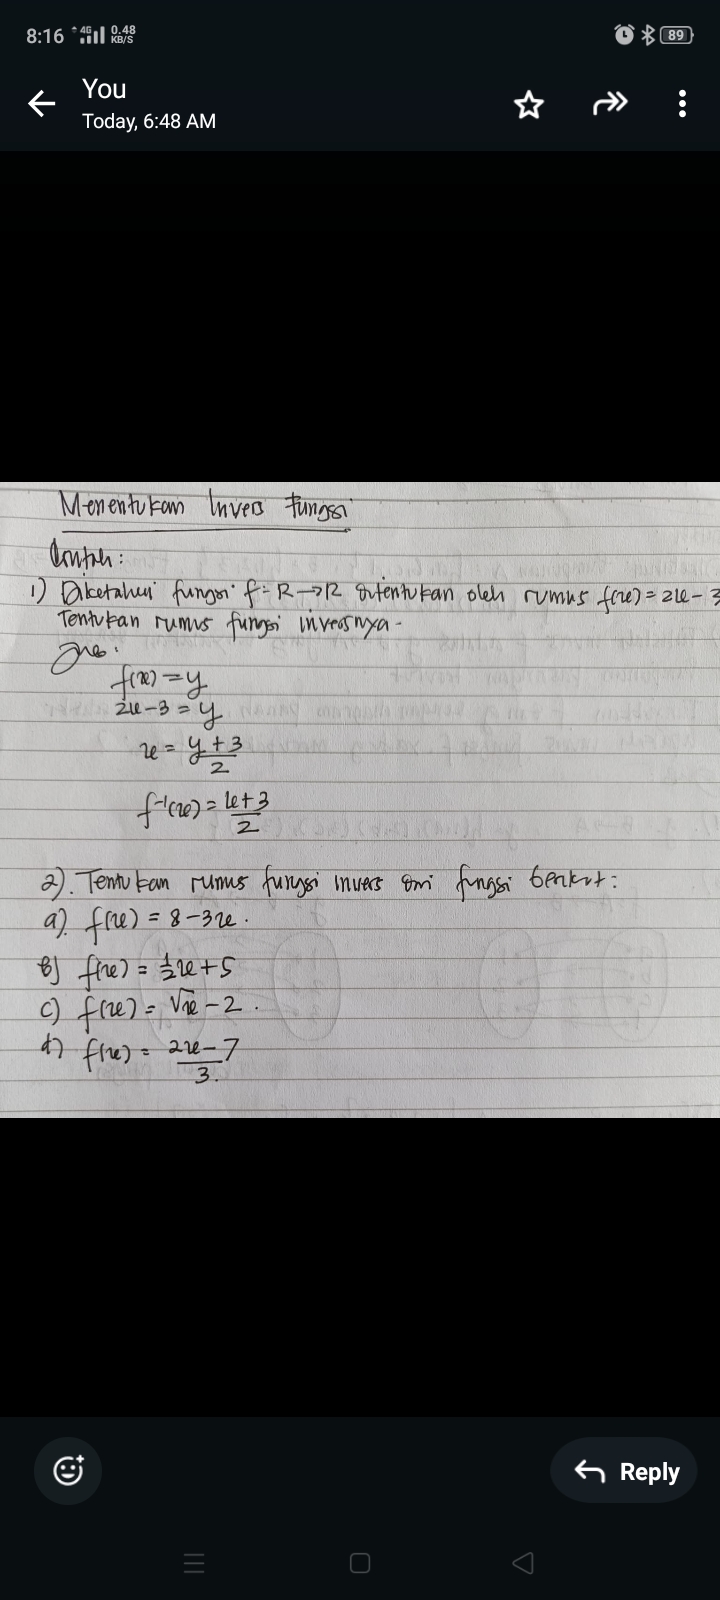 8:16 4G 0.48 KB/S 89
You
Today, 6:48 AM
Menentukan Invers Fungsi
Contoh:
1) Diketahui fungsi f: R→R ditentukan oleh rumus f(x) = 2x - 3
Tentukan rumus fungsi inversnya -
Jwb.
f(x) = y
2x-3 = y
x = y+3/2
f⁻¹(x) = x+3/2
2). Tentukan rumus fungsi invers dri fungsi berikut:
a). f(x) = 8-3x.
b) f(x) = 1/2x+5
c) f(x) = √x - 2.
d) f(x) = 2x-7/3.
Reply